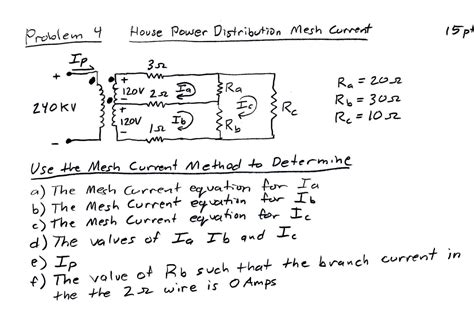 Problem 4 House Power Distribution Mesh Current 15pt
Ip 3Ω
+ + Ra = 20Ω
240KV 120V 2Ω Ia Ra Rb = 30Ω
- Ic Rc Rc = 10Ω
+
120V 1Ω Ib Rb
- -
Use the Mesh Current Method to Determine
a) The Mesh Current equation for Ia
b) The Mesh Current equation for Ib
c) The Mesh Current equation for Ic
d) The values of Ia Ib and Ic
e) Ip
f) The value of Rb such that the branch current in
the the 2Ω wire is 0 Amps